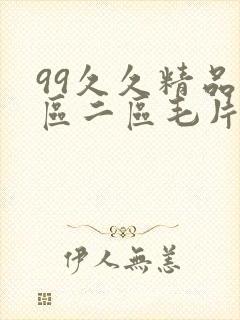 99久久精品
區二區毛片
伊人無恙